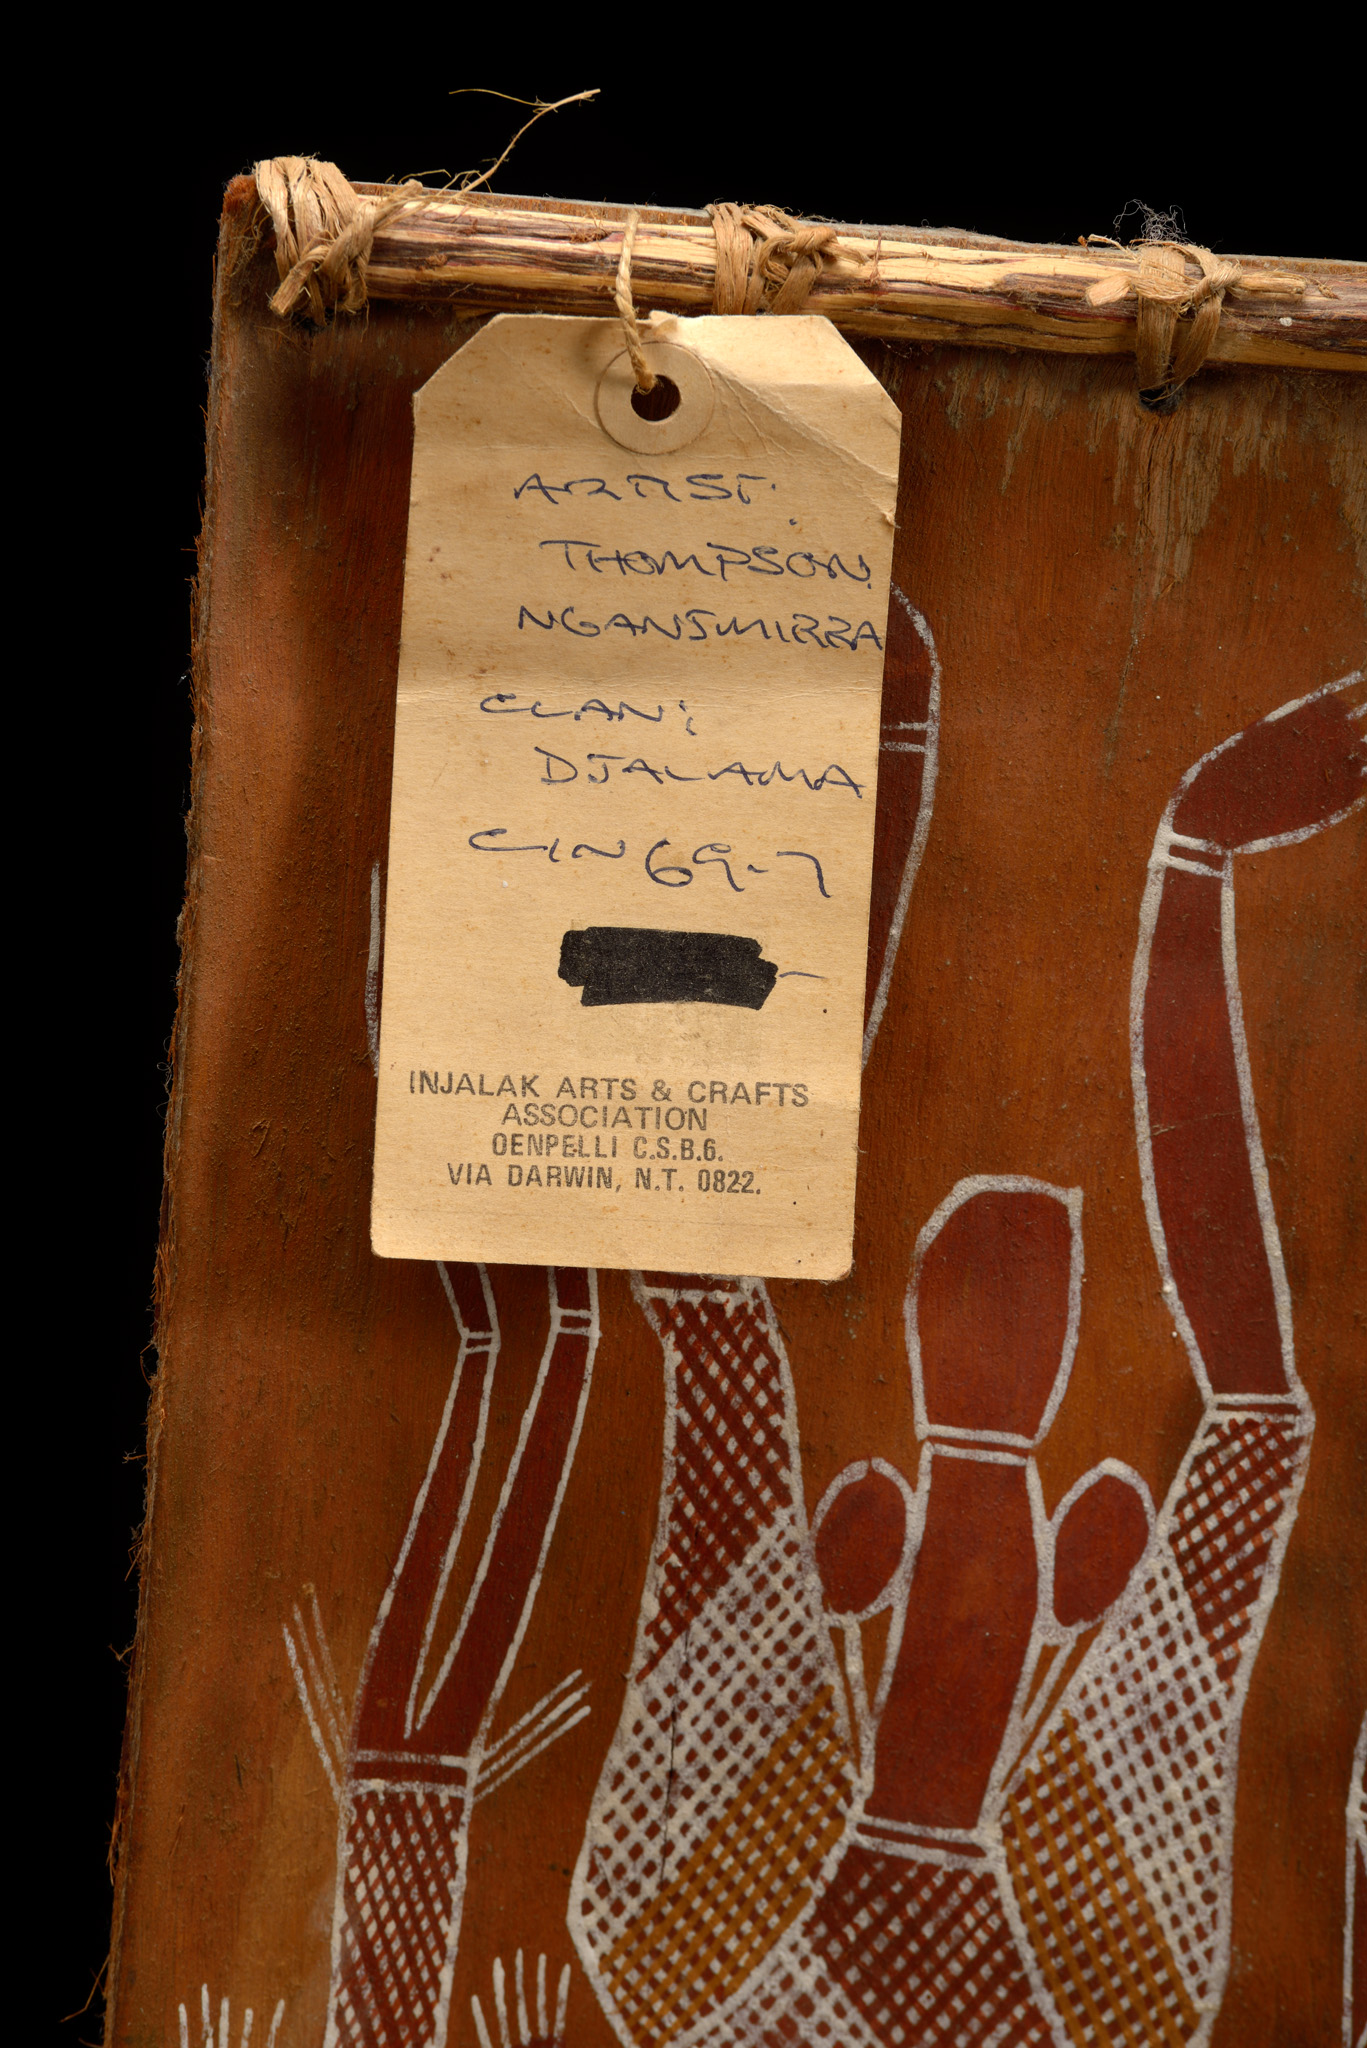 ARTIST:
THOMPSON
NGANJMIRRA
CLAN:
DJALAMA
CIN69-7
INJALAK ARTS & CRAFTS
ASSOCIATION
OENPELLI C.S.B.6.
VIA DARWIN, N.T. 0822.